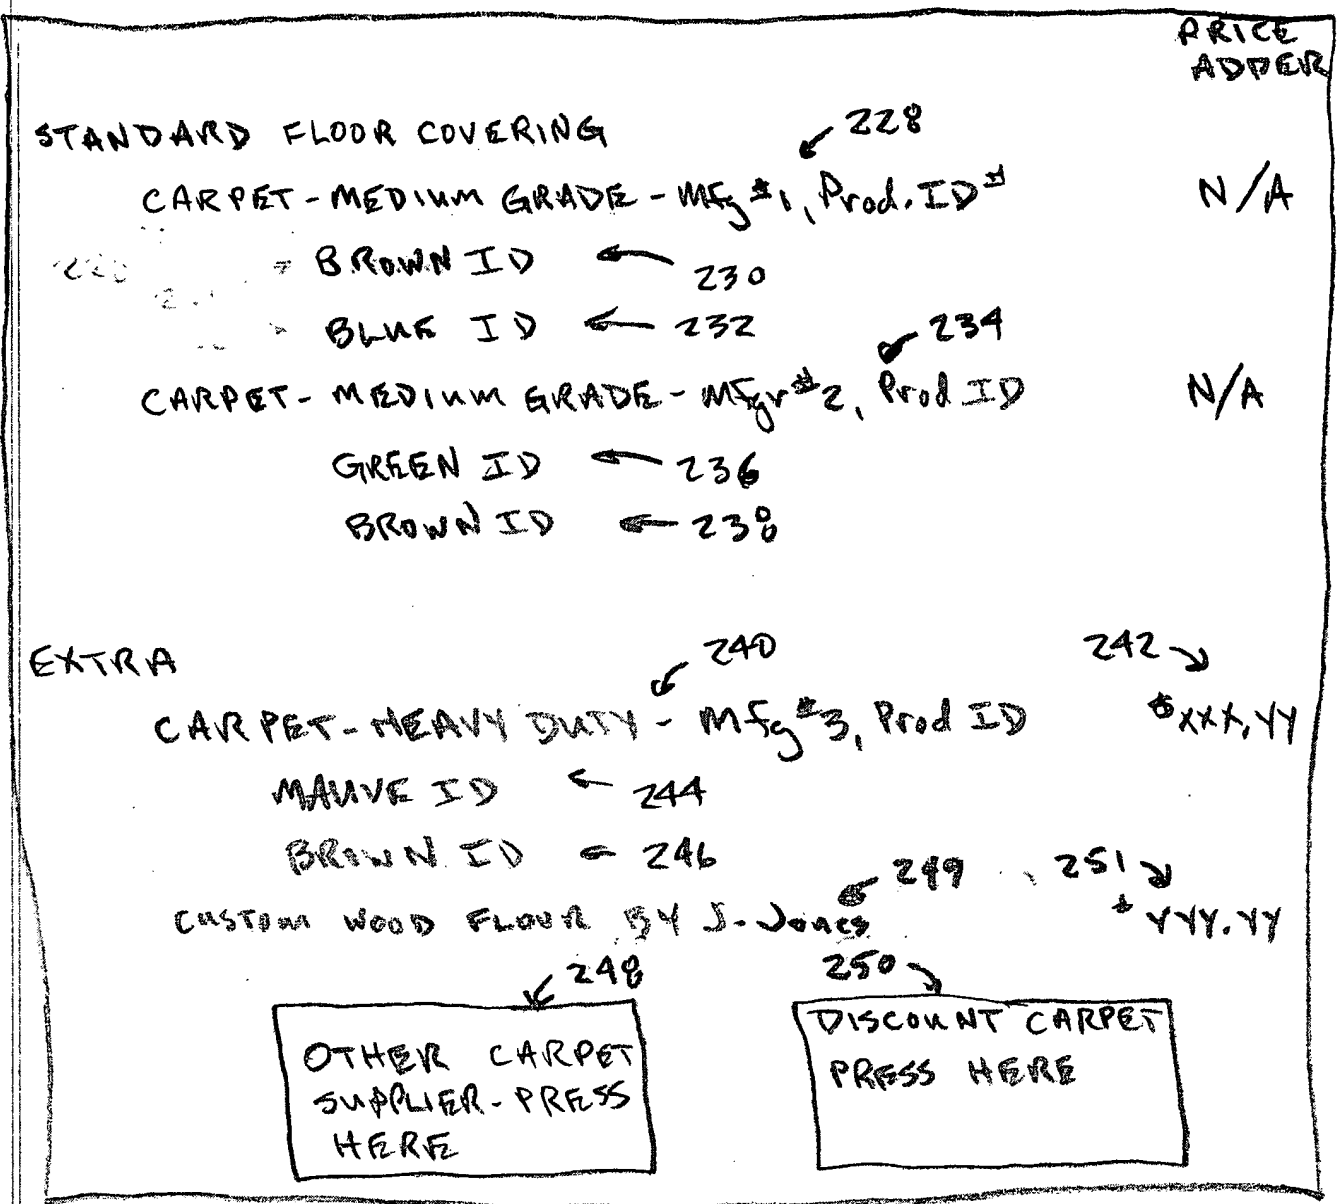 PRICE
ADDER
STANDARD FLOOR COVERING
228
CARPET-MEDIUM GRADE-Mfg #1, Prod. ID# N/A
BROWN ID
230
BLUE ID 232
234
CARPET-MEDIUM GRADE-Mfgr#2, Prod ID N/A
GREEN ID 236
BROWN ID 238
EXTRA 240 242
CARPET-HEAVY DUTY-Mfg#3, Prod ID $XXX.YY
MAUVE ID 244
BROWN ID 246
249 251
CUSTOM WOOD FLOOR BY J-Jones $YYY.YY
248 250
OTHER CARPET
SUPPLIER-PRESS
HERE
DISCOUNT CARPET
PRESS HERE